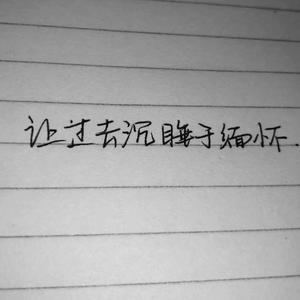 让过去沉睡于缅怀.